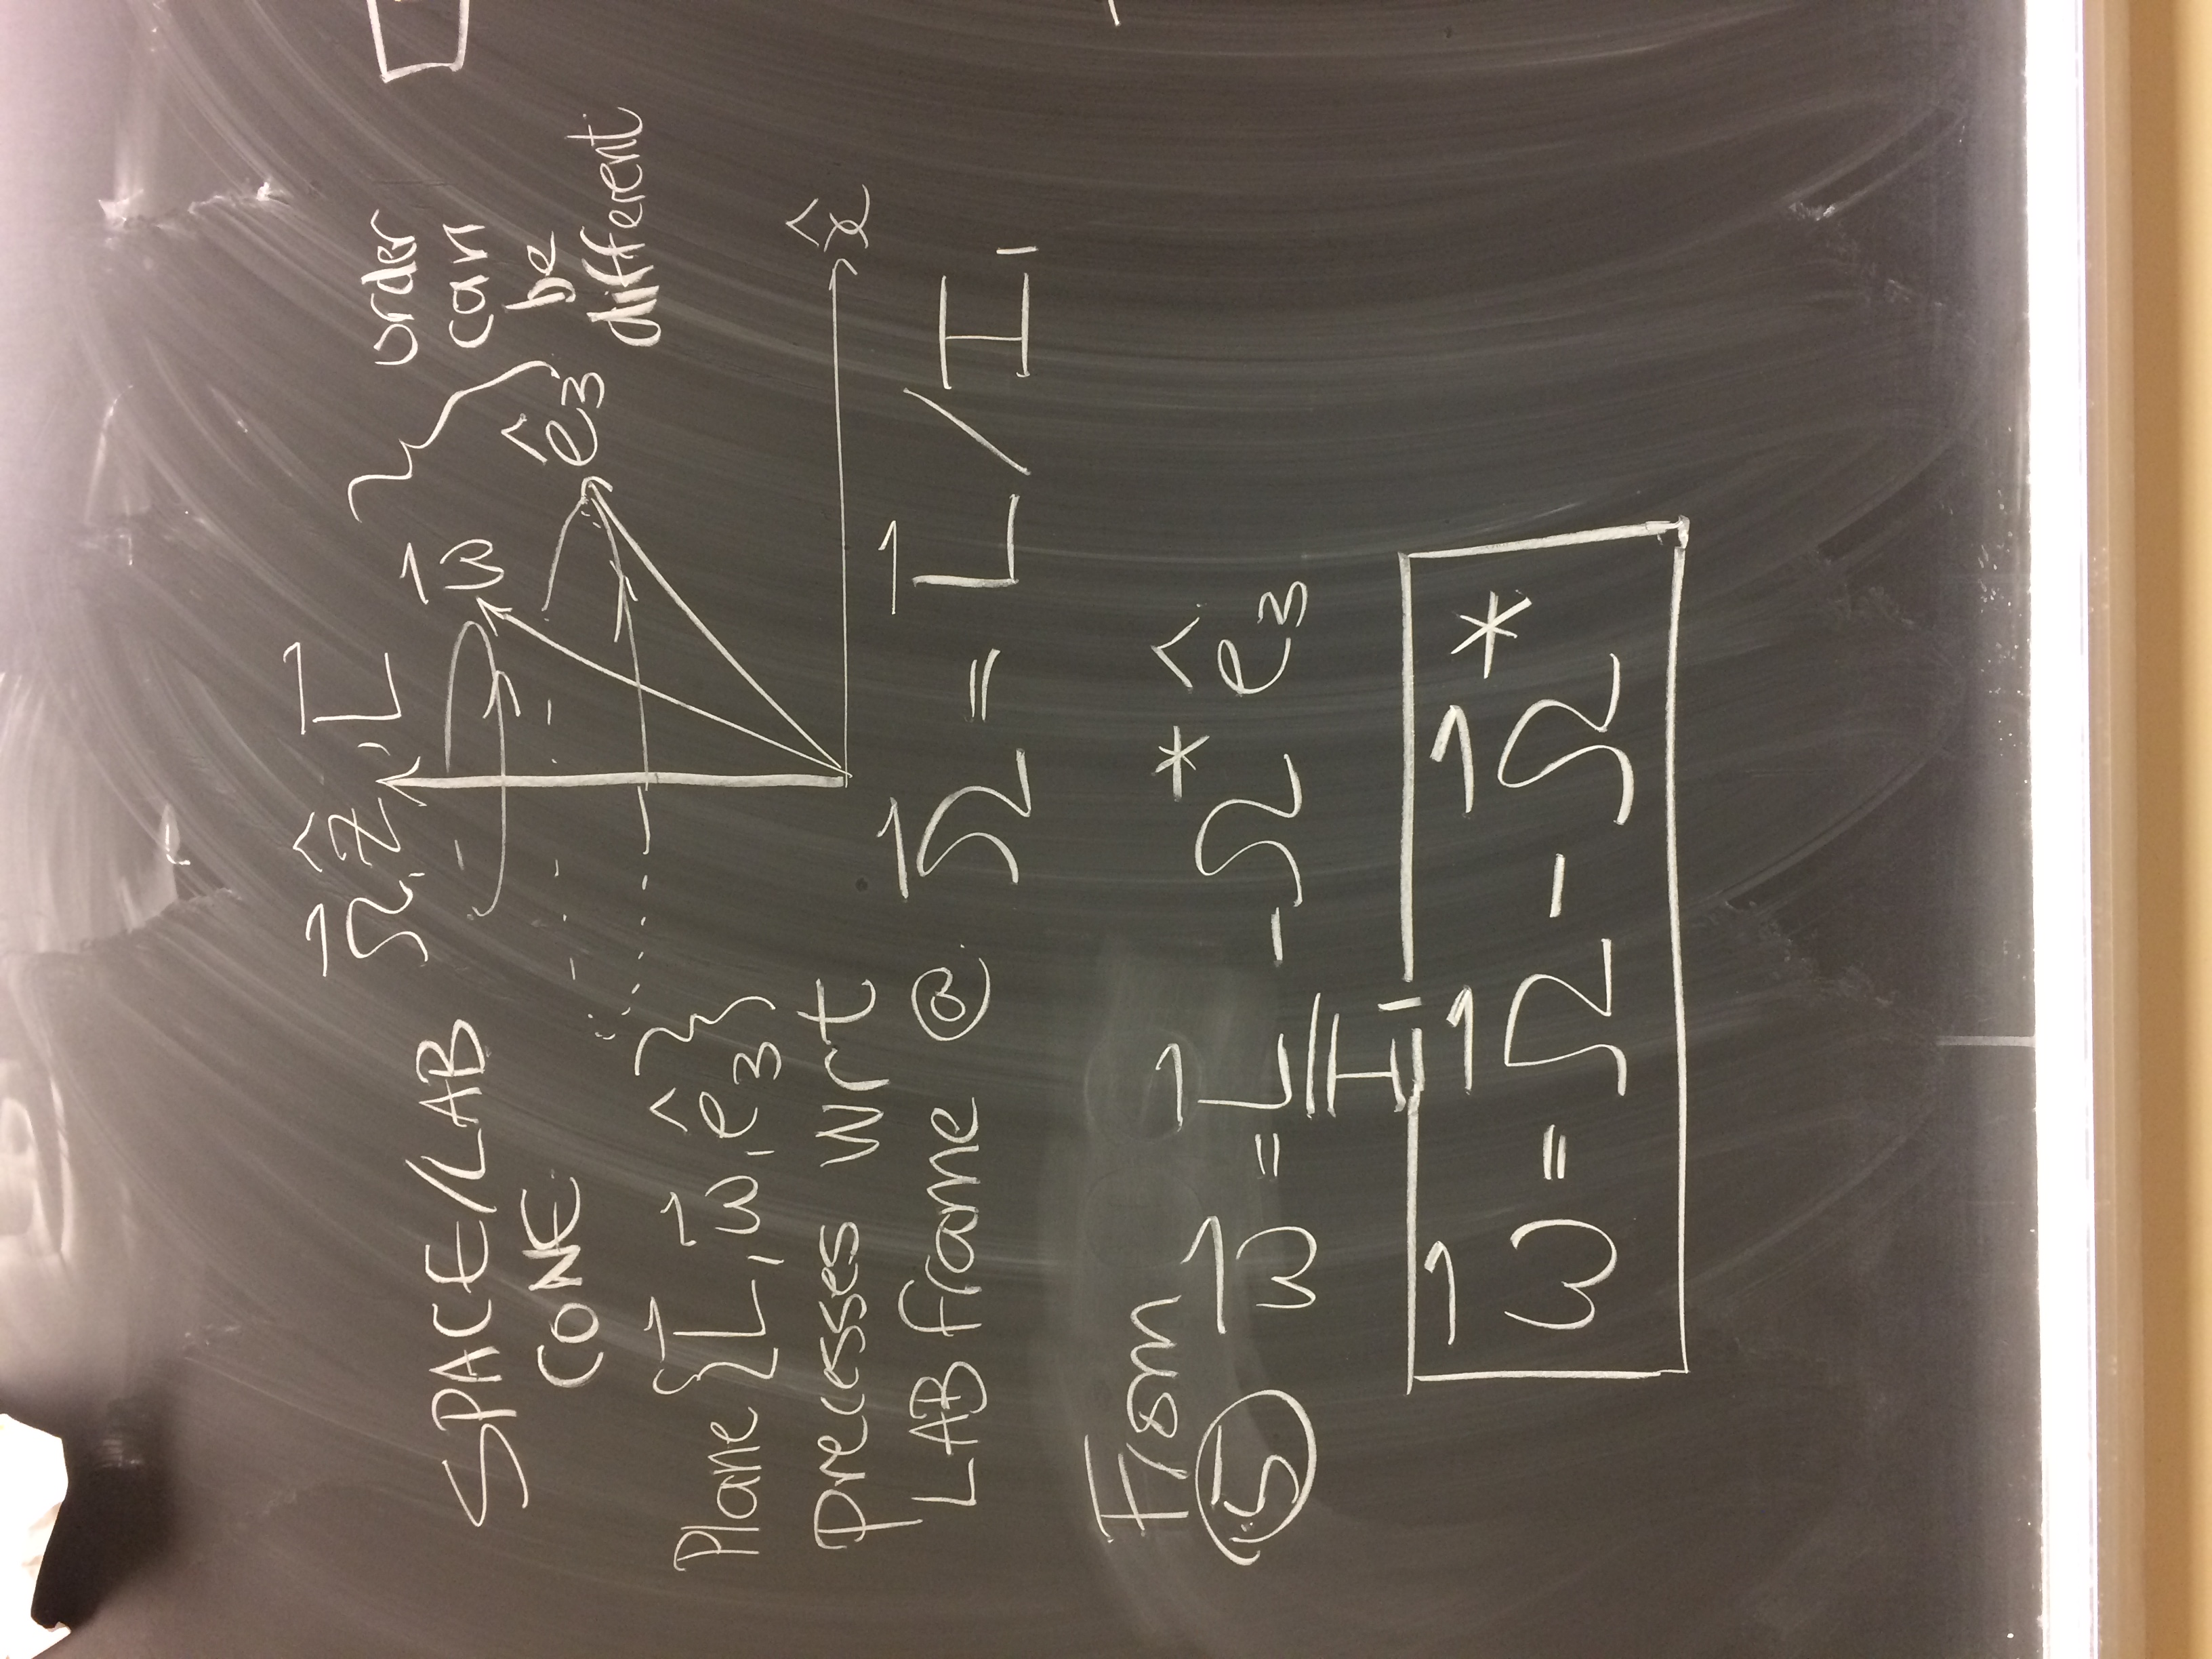 SPACE/LAB
CONE
Ω⃗, ẑ, L⃗
ω⃗
ê₃
order
can
be
different
x̂
Plane {L⃗, ω⃗, ê₃}
precesses wrt
LAB frame @ Ω⃗ = L⃗ / I
From
(15) ω⃗ = L⃗/I - Ω* ê₃
ω⃗ = Ω⃗ - Ω⃗*